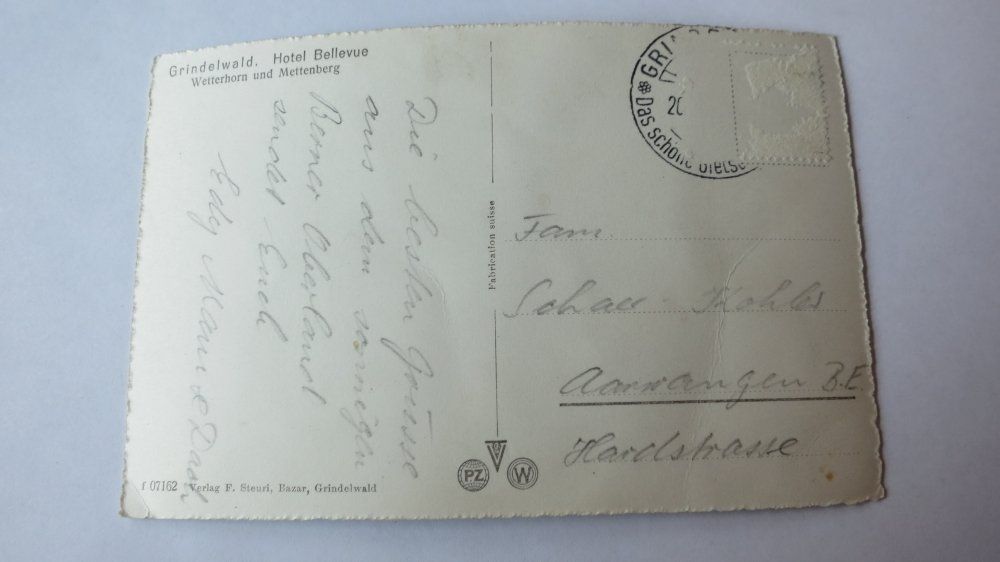 Grindelwald. Hotel Bellevue
Wetterhorn und Mettenberg
Die besten Grüsse
aus dem sonnigen
Berner Oberland
sendet Euch
Edy
Fabrication suisse
GRIN
20
Das schöne
Fam.
Kohler
Aarwangen B.E.
Hardstrasse
PZ
W
f 07162 Verlag F. Steuri, Bazar, Grindelwald